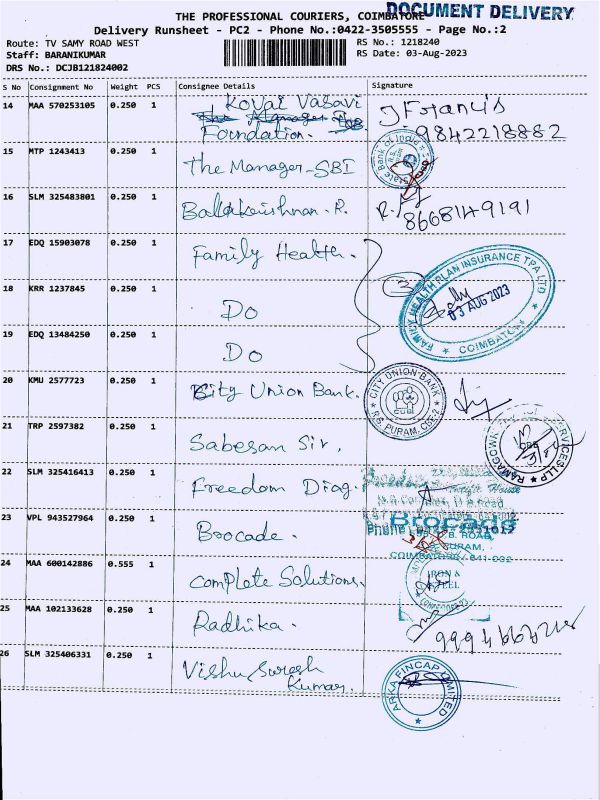 DOCUMENT DELIVERY
THE PROFESSIONAL COURIERS, COIMBATORE
Delivery Runsheet - PC2 - Phone No.:0422-3505555 - Page No.:2
Route: TV SAMY ROAD WEST
RS No.: 1218240
Staff: BARANIKUMAR
RS Date: 03-Aug-2023
DRS No.: DCJB121824002
S No Consignment No Weight PCS Consignee Details Signature
14 MAA 570253105 0.250 1 Kovai Vasavi
The Manager
Foundation.
J Francis
9842218882
15 MTP 1243413 0.250 1 The Manager-SBI
State Bank of India
16 SLM 325483801 0.250 1 Balakrishnan. R. R.
8668149191
17 EDQ 15903078 0.250 1 Family Health.
18 KRR 1237845 0.250 1 Do
3
FAMILY HEALTH PLAN INSURANCE TPA LTD
03 AUG 2023
COIMBATORE
19 EDQ 13484250 0.250 1 Do
20 KMU 2577723 0.250 1 City Union Bank.
CITY UNION BANK
R.S. PURAM, CBE-2
21 TRP 2597382 0.250 1 Sabesan Sir,
SERVICES LLP
22 SLM 325416413 0.250 1 Freedom Diag.
23 VPL 943527964 0.250 1 Brocade.
Brocade
Phone
B. ROAD,
PURAM,
COIMBATORE - 641-002
24 MAA 600142886 0.555 1 Complete Solutions.
IRON &
STEEL
25 MAA 102133628 0.250 1 Radhika.
26 SLM 325406331 0.250 1 Vishnu Suresh
Kumar.
ARKA FINCAP LIMITED